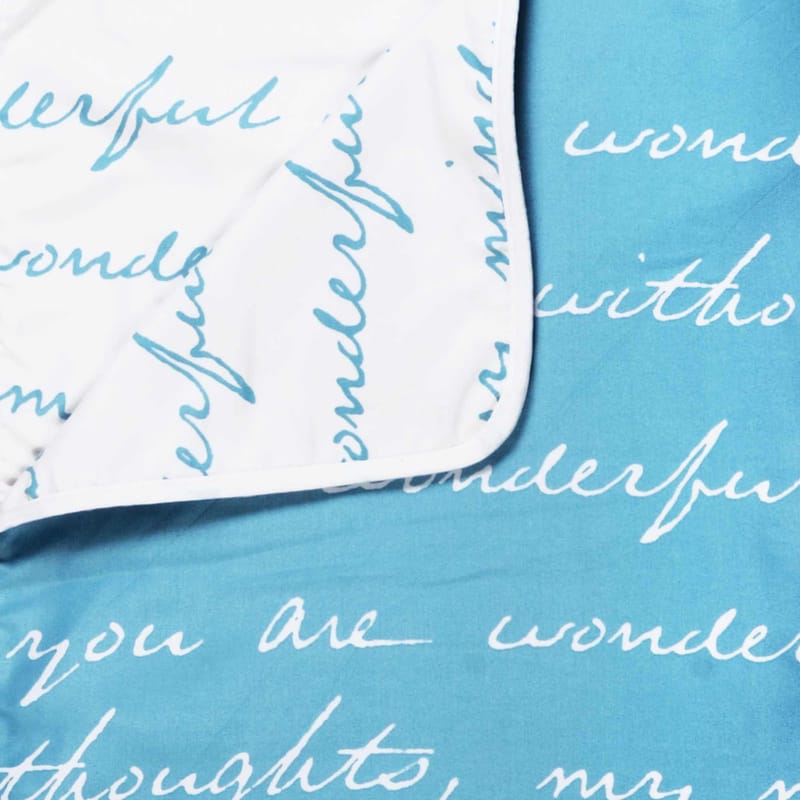 derful
wonde
erfu
onderful
mind
wond
witho
wonderfu
you are wonder
thoughts, my